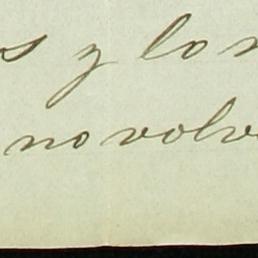 s y lo
no volv